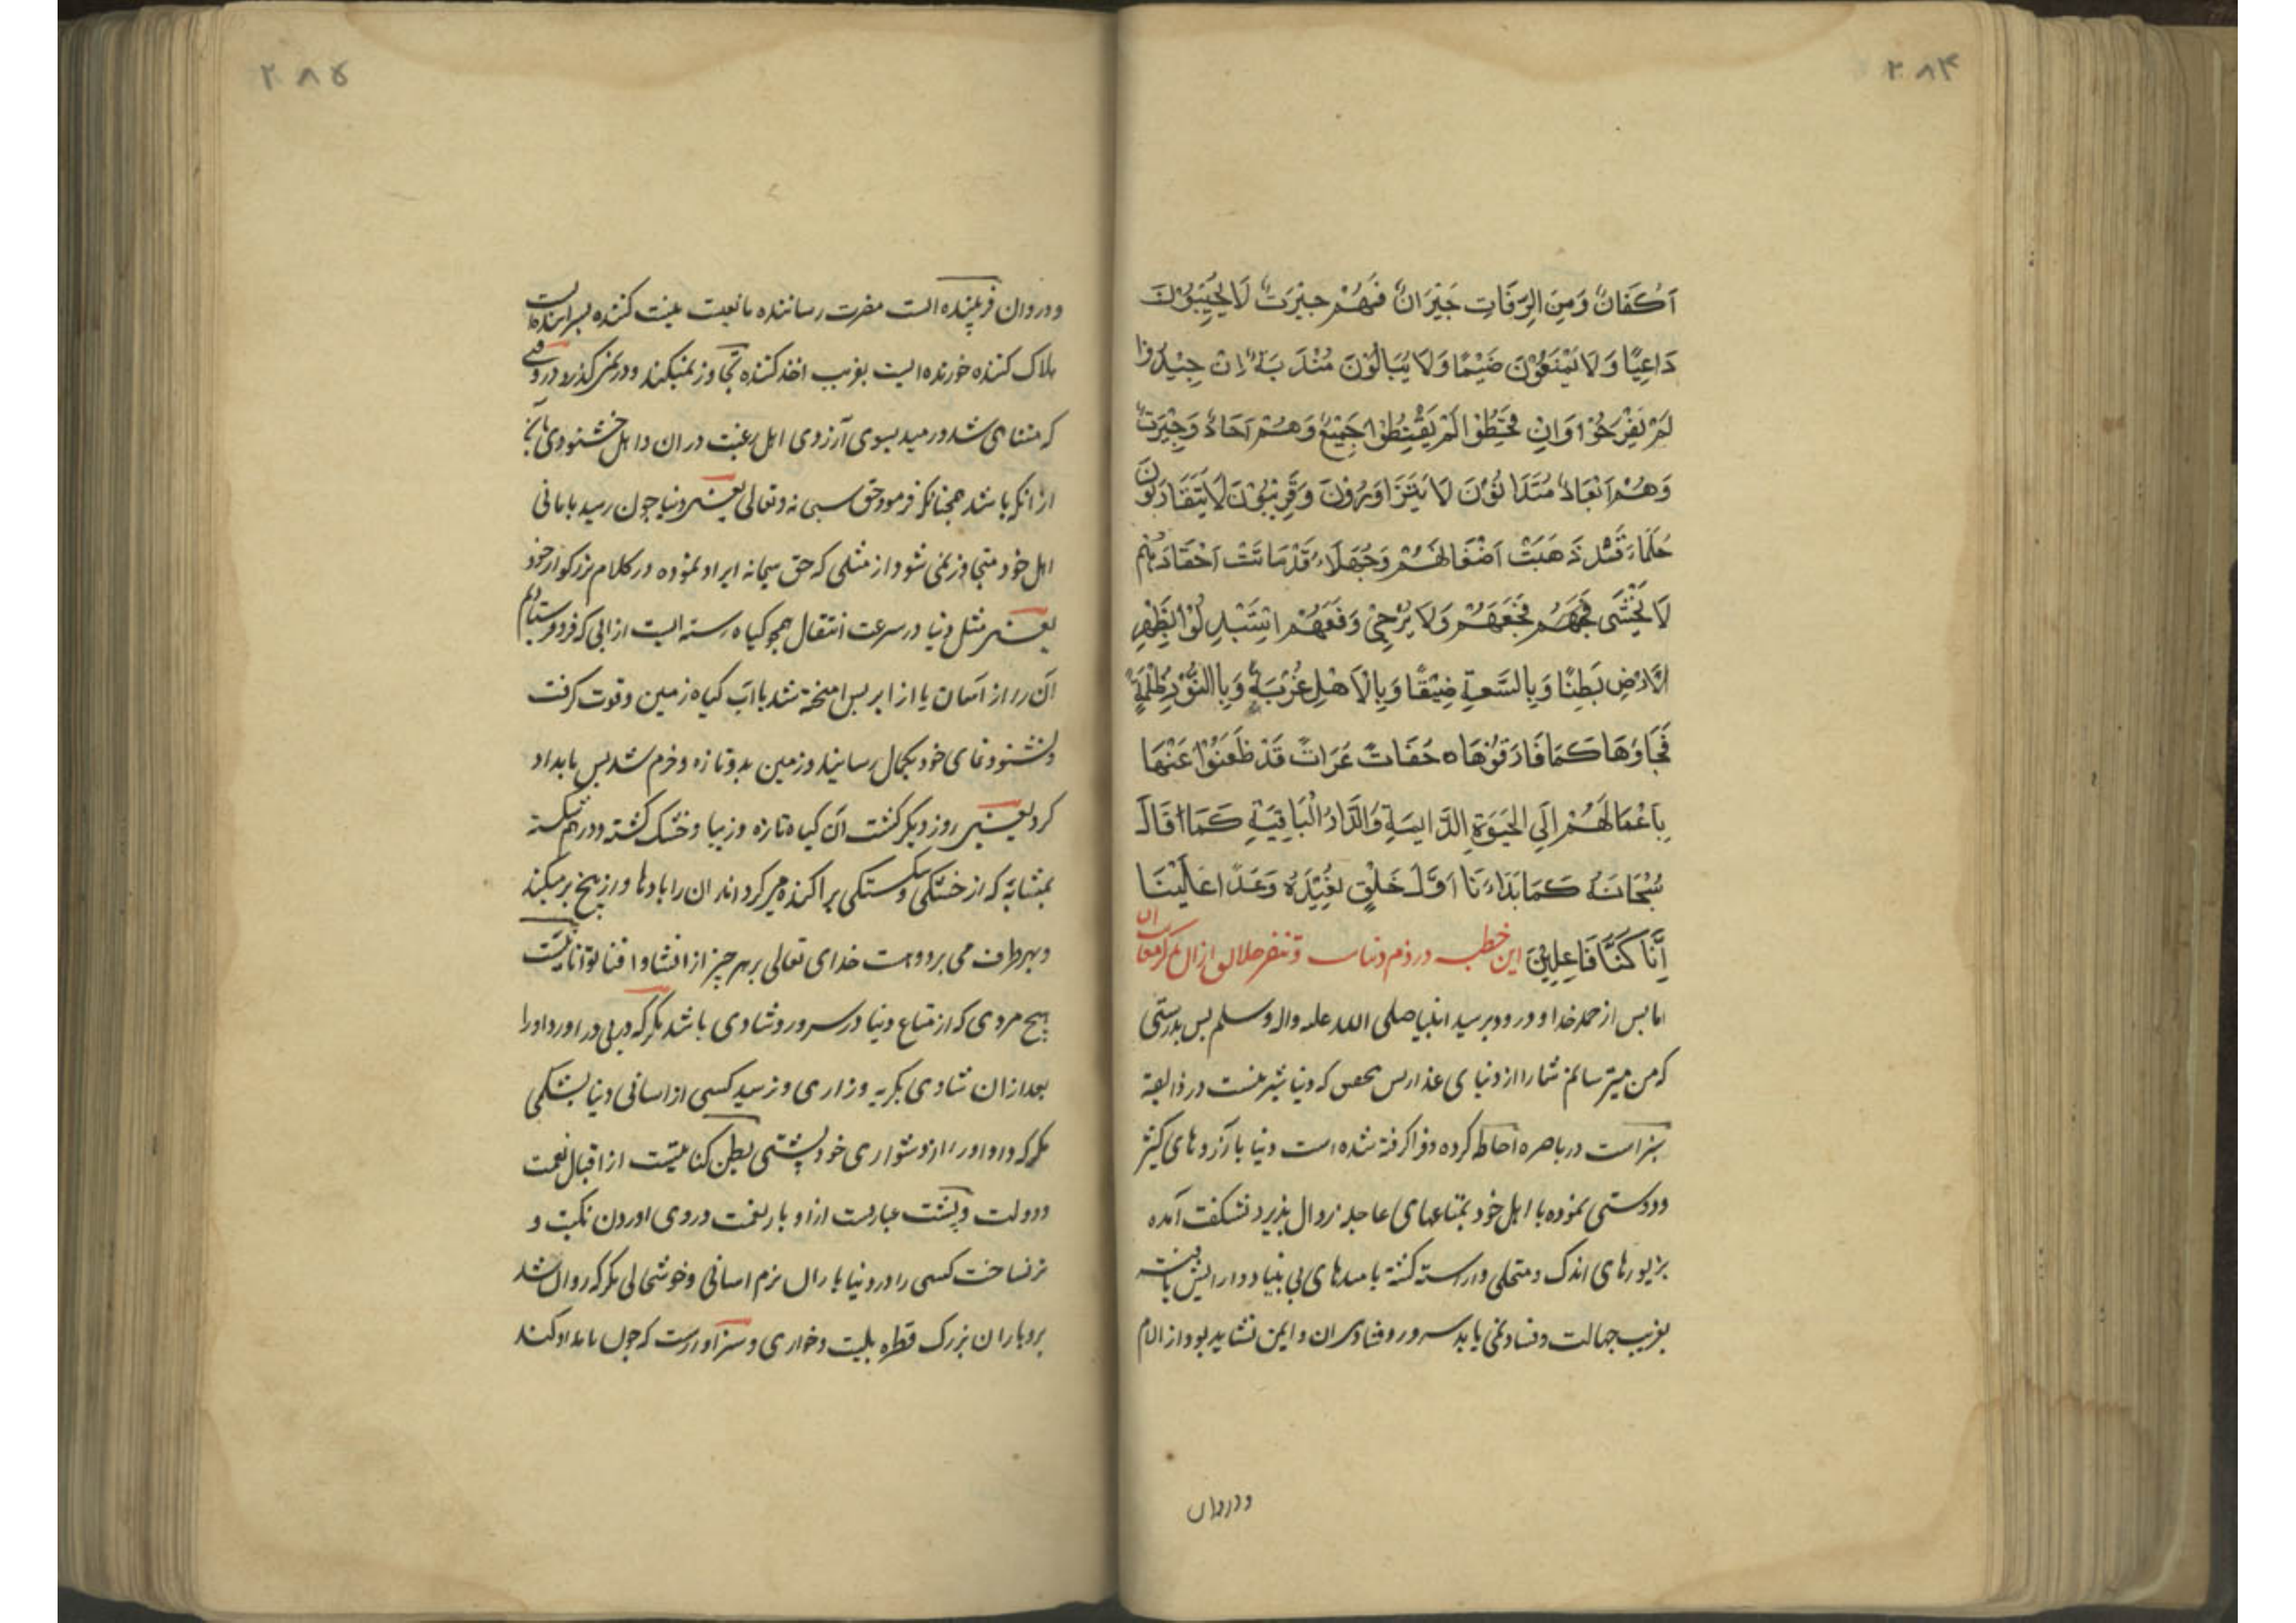 ۲۸۴
اَكْفَانٌ وَمِنَ الرِّفَاتِ جَيْرَانٌ فَهُمْ جَيْرَتٌ لَا يُجِيْبُوْنَ
دَاعِيًا وَلَا يَمْنَعُوْنَ ضَيْمًا وَلَا يُبَالُوْنَ مَنْدَبَةً اِنْ جِيْدُوْا
لَمْ يَفْرَحُوْا وَاِنْ قُحِطُوْا لَمْ يَقْنِطُوْا جَمِيْعٌ وَهُمْ اَحَادٌ وَجِيْرَتٌ
وَهُمْ اَبْعَادٌ مُتَدَانُوْنَ لَا يَتَزَاوَرُوْنَ وَقَرِيْبُوْنَ لَا يَتَقَارَبُوْنَ
حُلَمَاءُ قَدْ ذَهَبَتْ اَضْغَانُهُمْ وَجُهَلَاءُ قَدْ مَاتَتْ اَحْقَادُهُمْ
لَا يُخْشَى فَجْعُهُمْ وَلَا يُرْجٰى دَفْعُهُمْ اسْتَبْدِلُوْا بِظَهْرِ
الْاَرْضِ بَطْنًا وَبِالسَّعَةِ ضِيْقًا وَبِالْاَهْلِ غُرْبَةً وَبِالنُّوْرِ ظُلْمَةً
فَجَاؤُهَا كَمَا فَارَقُوْهَا حُفَاتٌ عُرَاتٌ قَدْ ظَعَنُوْا عَنْهَا
بِاَعْمَالِهُمْ اِلَى الْحَيٰوةِ الدَّائِمَةِ وَالدَّارُ الْبَاقِيَةِ كَمَا قَالَ
سُبْحَانَهُ كَمَا بَدَاءْنَا اَوَّلَ خَلْقٍ نُعِيْدُهُ وَعَدًا عَلَيْنَا
اِنَّا كُنَّا فَاعِلِيْنَ این خطبه در ذم دنیاست و تنفر خلایق از ان
اما بس از حمد خدا و درود بر سید انبیا صلی الله علیه واله وسلم بس بدرستی
که من میترسانم شما را از دنیای غدار بس بتحقیق که دنیا شیرینست در ذایقه
سبز است در باصره احاطه کرده و فرا کرفته شده است دنیا بارزوهای کثیر
و دوستی نموده با اهل خود بمتاعهای عاجله زوال بذیرد شکفت آمده
بزیورهای اندک و متحلی و اراسته کشته بامیدهای بی بنیاد و ارایش یافته
بفریب جهالت و فساد نمی یابد سرور و شادی ان و ایمن نشاید بود از الام
و دروان
۲۸۵
و دروان فریبنده است مضرت رساننده مانعیت
هلاک کننده خورنده ایست بفریب اخذ کننده تجاوز نمیکند و در نمیکذرد در وقتی
که متناهی شد و رسید بسوی آرزوی اهل رغبت در ان و اهل خشنودی
از انکه باشد همچنانکه فرمود حق سبحانه وتعالی یعنی دنیا جون رسید بامانی
اهل خود متجاوز نمی شود از مثلی که حق سبحانه ایراد نموده در کلام بزرکوار خود
یعنی مثل دنیا در سرعت انتقال همجو کیاه رسته ایست از ابی که فرو فرستادیم
آن را از آسمان یا از ابر بس امیخته شد باآب کیاه زمین و قوت کرفت
و نشو و نمای خود بکمال رسانید و زمین بدو تازه و خرم شد بس بامداد
کرد یعنی روز دیکر کشت آن کیاه تازه و زیبا و خشک کشته و درهم شکسته
بمثابه که از خشکی و شکستکی براکنده میکرداند ان را بادها و از بیخ بر میکند
و بهر طرف می برد و هست خدای تعالی بر هر جیز از انشا و افنا توانا نیست
هیچ مردی که از متاع دنیا در سرور و شادی باشد مکر که در بی در اورد او را
بعد از ان شادی بکریه و زاری و نرسید کسی از اسانی دنیا بشکمی
مکر که داد او را از دشواری خود بشتی بطن کنایتست از اقبال نعمت
و دولت و بشت عبارتست از ادبار نعمت و روی اوردن نکبت و
تر نساخت کسی را در دنیا باران نرم اسانی و خوشحالی مکر که روان شد
برو باران بزرک قطره بلیت و خواری و سزاوارست که جون بامداد کند